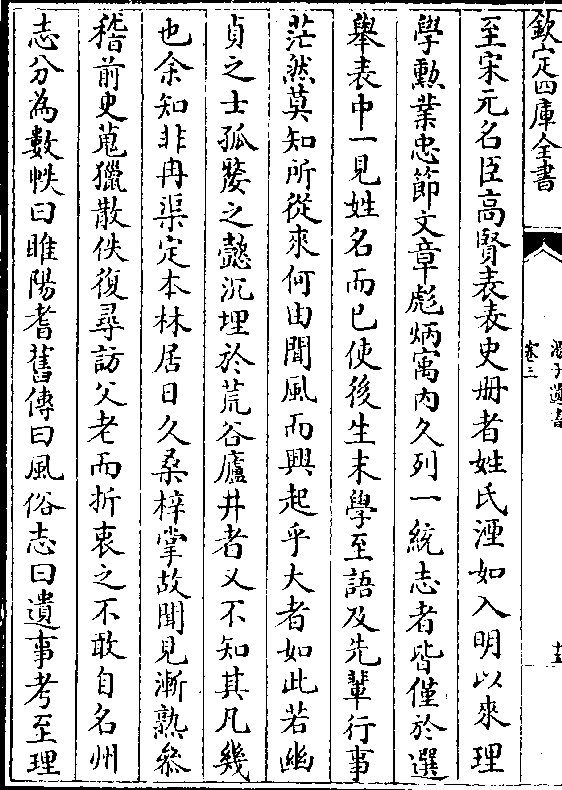 欽定四庫全書
卷三
至宋元名臣高賢表表史册者姓氏湮如入明以來理
學勲業忠節文章彪炳寓内久列一統志者皆僅於選
舉表中一見姓名而已使後生末學至語及先輩行事
茫然莫知所從來何由聞風而興起乎大者如此若幽
貞之士孤嫠之懿沉埋於荒谷廬井者又不知其凡幾
也余知非冉渠定本林居日久桑梓掌故聞見漸熟叅
稽前史蒐獵散佚復尋訪父老而折衷之不敢自名州
志分為數帙曰睢陽耆舊傳曰風俗志曰遺事考至理